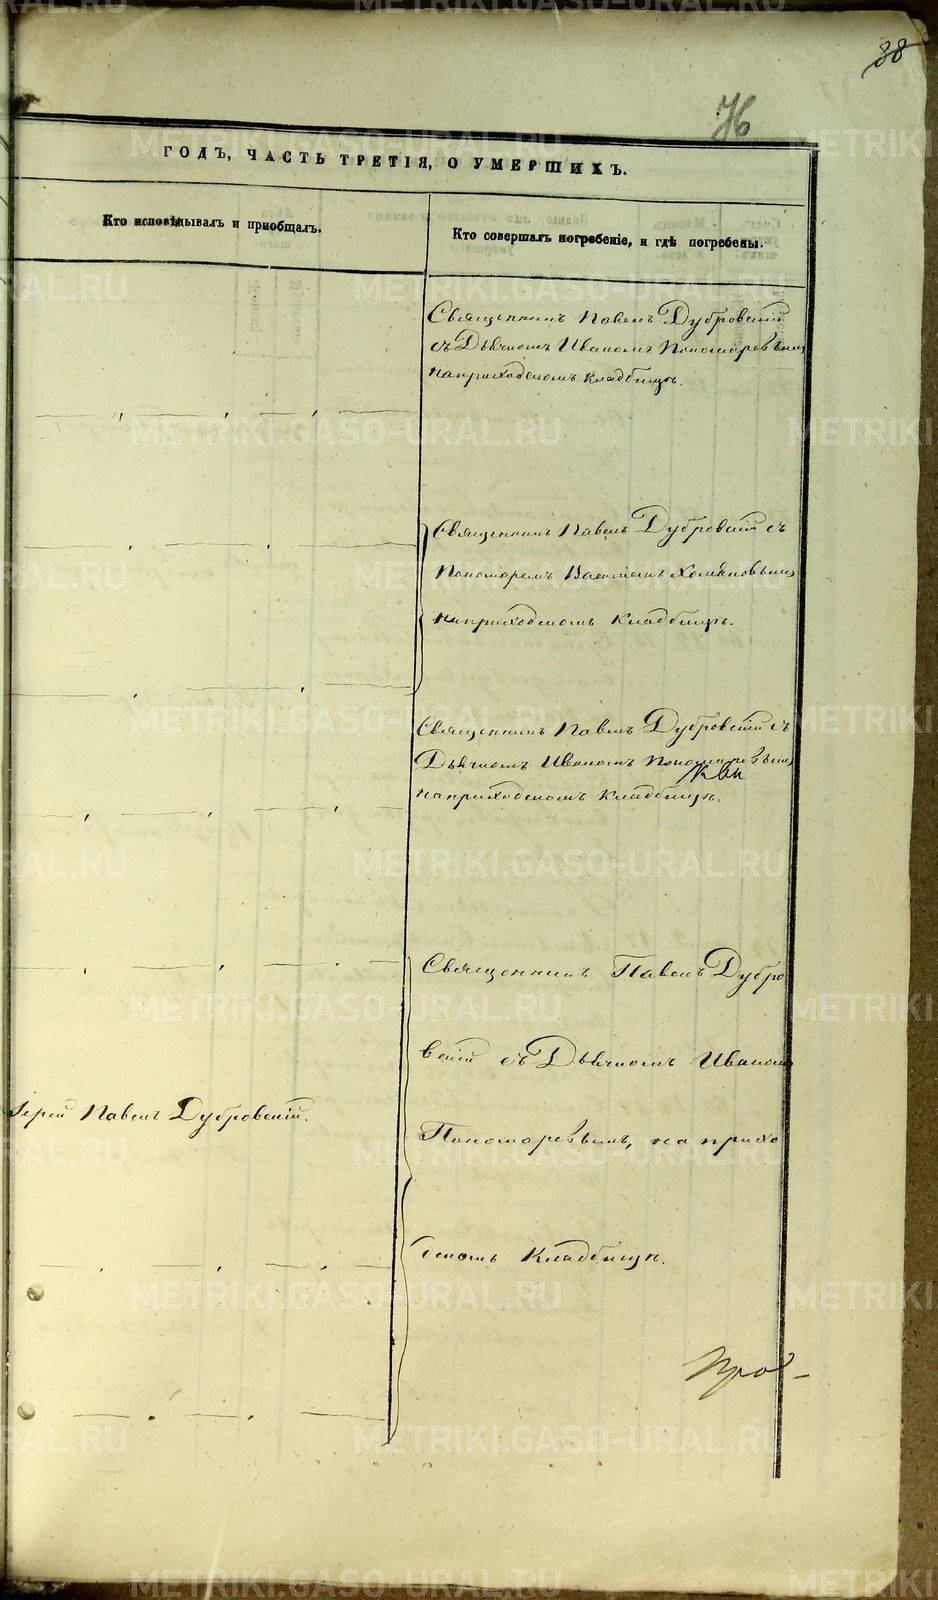 88
76
ГОДЪ, ЧАСТЬ ТРЕТІЯ, О УМЕРШИХЪ.
Кто исповѣдывалъ и пріобщалъ.
Кто совершалъ погребеніе, и гдѣ погребены.
Священникъ Павелъ Дубровскій
съ Дьячкомъ Иваномъ Пономаревымъ
на приходскомъ кладбищѣ.
Священникъ Павелъ Дубровскій съ
Пономаремъ Василіемъ Хомяковымъ
на приходскомъ кладбищѣ.
Священникъ Павелъ Дубровскій съ
Дьячкомъ Иваномъ Пономаревымъ
на приходскомъ кладбищѣ.
Священникъ Павелъ Дубро
вскій съ Дьячкомъ Иваномъ
Іерей Павелъ Дубровскій.
Пономаревымъ, на прихо
дскомъ кладбищѣ.
METRIKI.GASO-URAL.RU